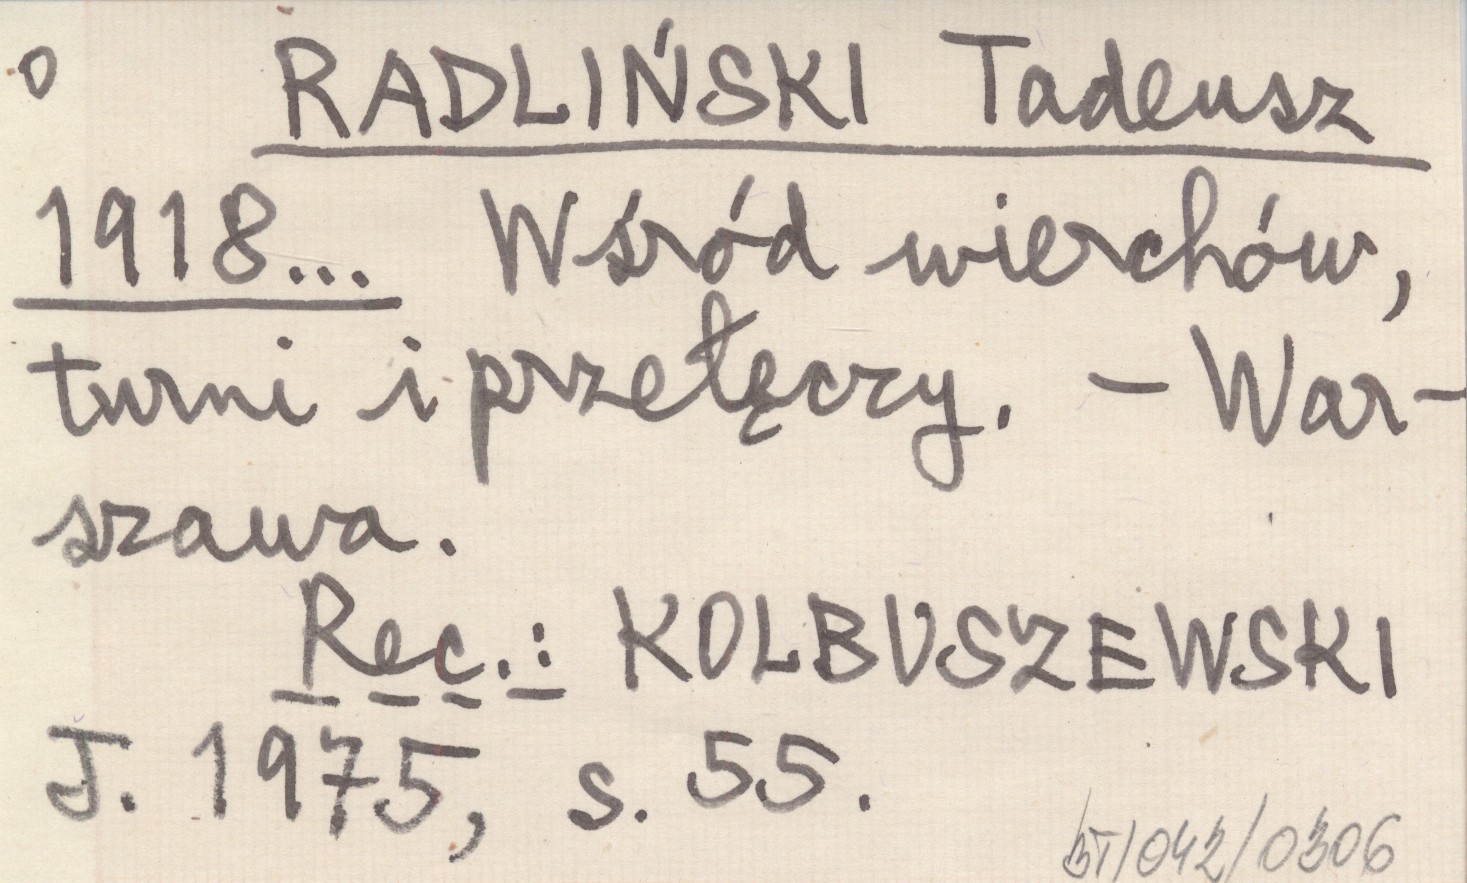 o RADLIŃSKI Tadeusz
1918... Wśród wierchów,
turni i przełęczy. – War-
szawa.
Rec.: KOLBUSZEWSKI
J. 1975, s. 55.
BT/042/0306